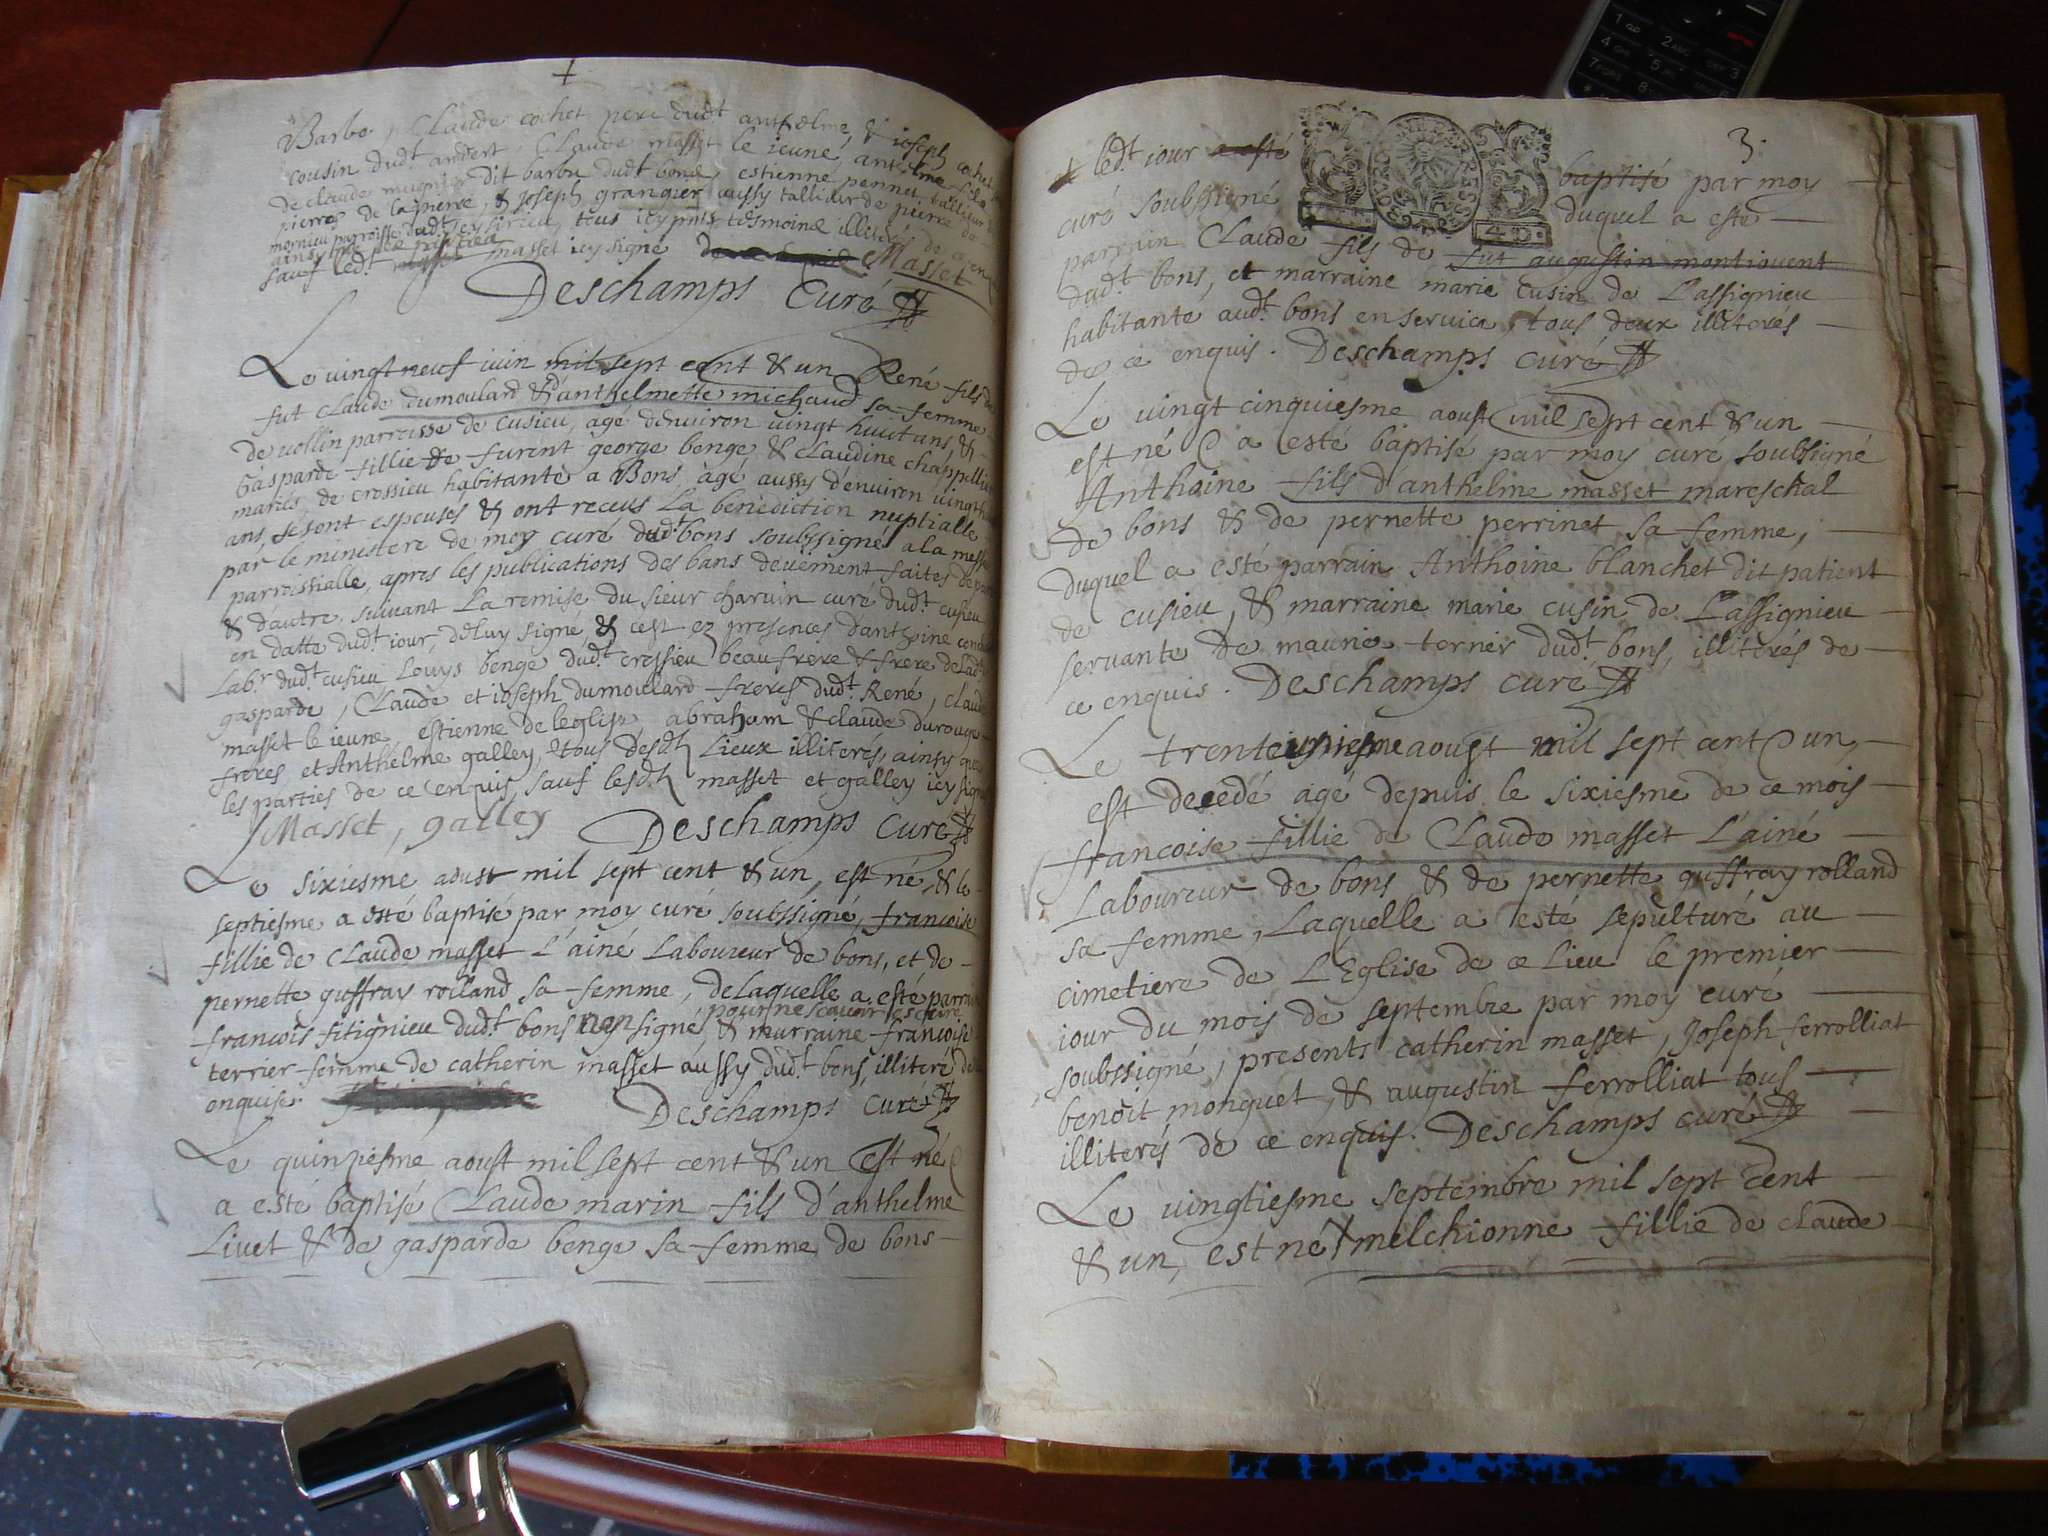 Barbo, Claude cochet pere dudt. anthelme, & ioseph cochet
cousin dudt. andert, Claude masset le ieune, anthelme fils
de claude mugnier dit barbu dudt. bons, estienne pennet tallieur
pierres de lapierre, & Joseph grangier aussy tallieur de pierre de
mornieu parroisse dudt. tous icy pnts. tesmoins illiterés de
ainsy
sauf ledt. masset icy signé Masset
Deschamps Curé
Le vingtneuf iuin mil sept cent & un René fils de
fut Claude dumoulard & d'anthelmette michaud sa femme
de vollin parroisse de cusieu, agé d'environ vingt huict ans, &
Gasparde fillie de furent george benge & Claudine chappellu
mariés, de crossieu habitante a Bons, agé aussy d'environ vingth
ans, se sont espousés & ont receus La benediction nuptialle
par le ministere de moy curé dudt. bons soubssigné a la messe
parroissialle, apres les publications des bans deuement faites de part
& d'autre, suivant La remise du sieur charvin curé dudt. cusieu
en datte dudt. iour, de luy signé & c'est ez presences d'anthoine
Labr. dudt. cusieu Louys benge dudt. cressieu beaufrere & frere de Ladt.
gasparde, Claude et ioseph dumoulard freres dudt. René, claude
masset le ieune, estienne de leglise abraham & claude durouge
freres et Anthelme galley, tous desdts. Lieux illiterés, ainsy que
les parties de ce enquis, sauf lesdts. masset et galley icy signés
Masset, galley Deschamps Curé
Le sixiesme aoust mil sept cent & un, est né, & le
septiesme a esté baptisé par moy curé soubssigné, francoise
fillie de Claude masset L'ainé Laboureur de bons, et de
pernette guffray rolland sa femme, de laquelle a esté parrain
pour ne scavoir escrire
francois fitignieu dudt. bons non signé, & marraine francoise
terrier femme de catherin masset aussy dudt. bons, illiteré de
enquise. Deschamps curé
Le quinziesme aoust mil sept cent & un est né &
a esté baptisé Claude marin fils d'anthelme
Livet & de gasparde benge sa femme de bons
3.
+ ledt. iour a esté baptisé par moy
curé soubssigné duquel a esté
parrain Claude fils de fut augustin montiouent
dudt. bons, et marraine marie cusin de Lassignieu
habitante audt. bons en service, tous deux illiterés
de ce enquis. Deschamps curé
40.
Le vingt cinquiesme aoust mil sept cent & un
est né & a esté baptisé par moy curé soubsigné
Anthoine fils d'anthelme masset mareschal
de bons & de pernette perrinet sa femme,
duquel a esté parrain Anthoine blanchet dit patient
de cusieu, & marraine marie cusin de Lassignieu
servante de maurie ternier dudt. bons, illiterés de
ce enquis. Deschamps curé
Le trenteuniesme aoust mil sept cent & un,
est decedé agé depuis le sixiesme de ce mois
francoise fillie de Claude masset L'ainé
Laboureur de bons & de pernette guffray rolland
sa femme, Laquelle a esté sepulturé au
cimetiere de L'Eglise de ce Lieu le premier
iour du mois de septembre par moy curé
soubssigné, presents catherin masset, Joseph ferrolliat
benoit monguet, & augustin ferrolliat tous
illiterés de ce enquis. Deschamps curé
Le vingtiesme septembre mil sept cent
& un, est né melchionne fillie de claude